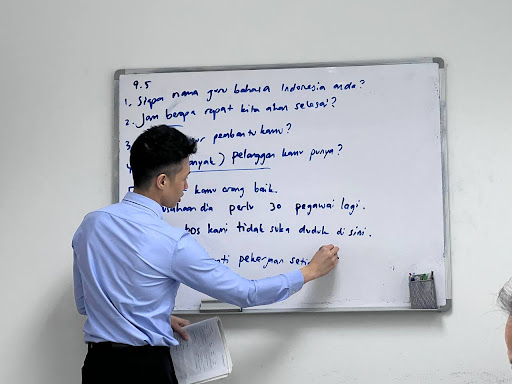 9.5
1. Siapa nama guru bahasa Indonesia anda?
2. Jam berapa rapat kita akan selesai?
3 pembantu kamu?
banyak) pelanggan kamu punya?
kamu orang baik.
dia perlu 30 pegawai lagi.
bos kami tidak suka duduk di sini.
pekerjaan